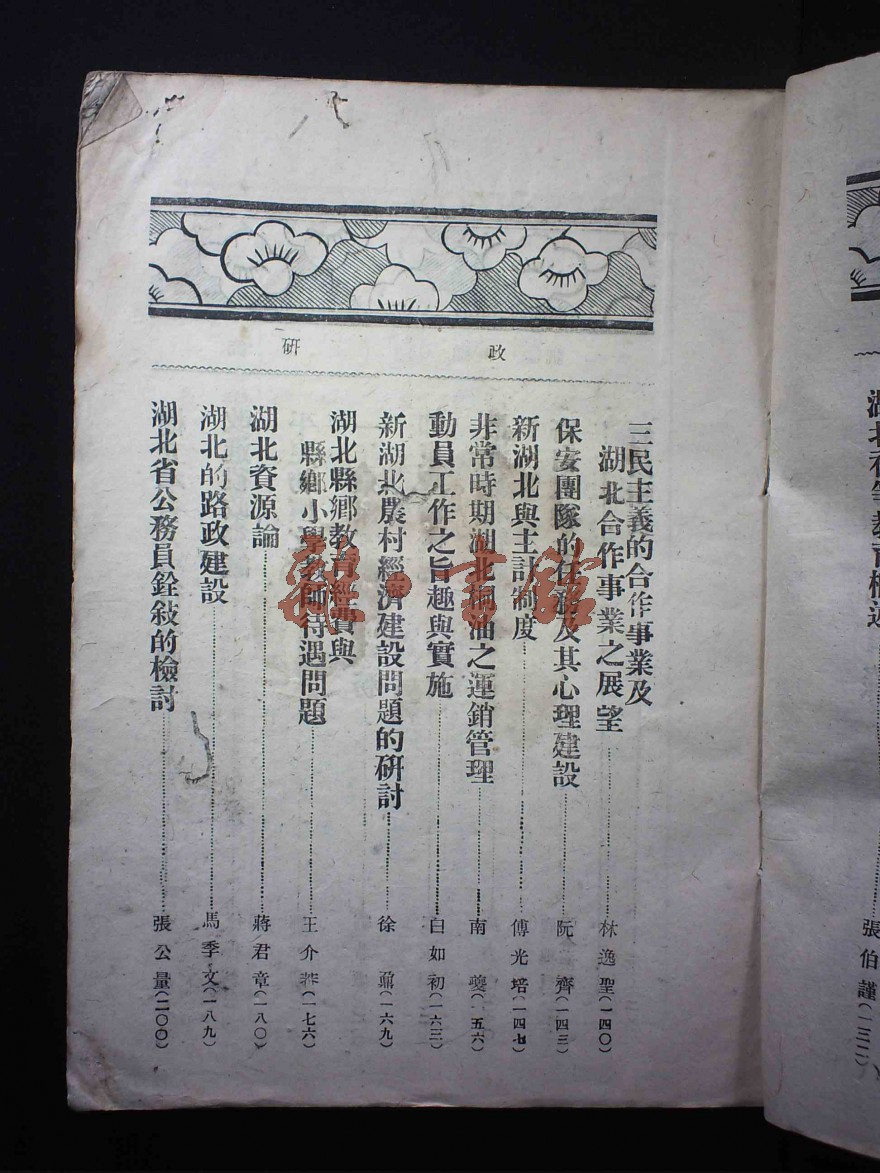 政研
三民主義的合作事業及
湖北合作事業之展望……林逸聖(一四〇)
保安團隊的任務及其心理建設……阮齊(一四三)
新湖北與主計制度……傅光培(一四七)
非常時期湖北桐油之運銷管理……南夔(一五六)
動員工作之旨趣與實施……白如初(一六三)
新湖北農村經濟建設問題的研討……徐鼐(一六九)
湖北縣鄉教育經費與
縣鄉小學教師待遇問題……王介(一七六)
湖北資源論……蔣君章(一八〇)
湖北的路政建設……馬季文(一八九)
湖北省公務員銓敍的檢討……張公量(二〇〇)
張伯謹(一三二)